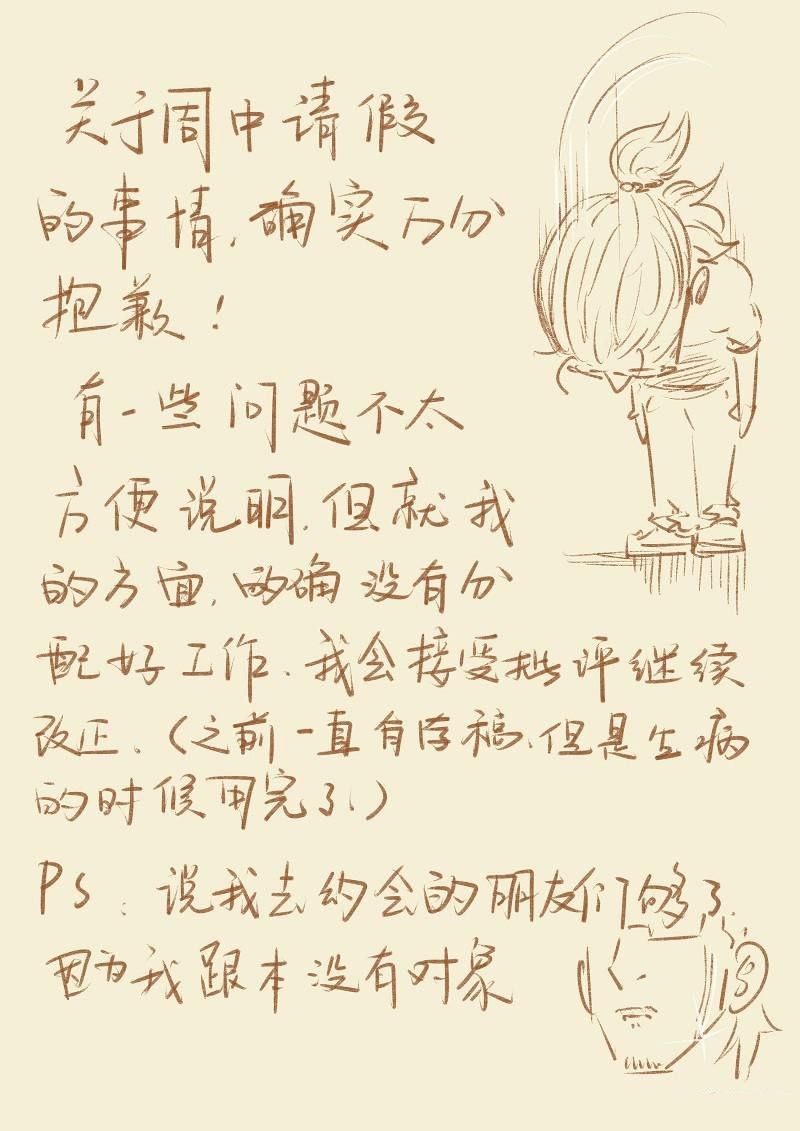 关于周中请假
的事情,确实万分
抱歉!
有一些问题不太
方便说明,但就我
的方面,的确没有分
配好工作、我会接受批评继续
改正.(之前一直有存稿、但是生病
的时候用完了、)
PS:说我去约会的朋友们够了.
因为我跟本没有对象